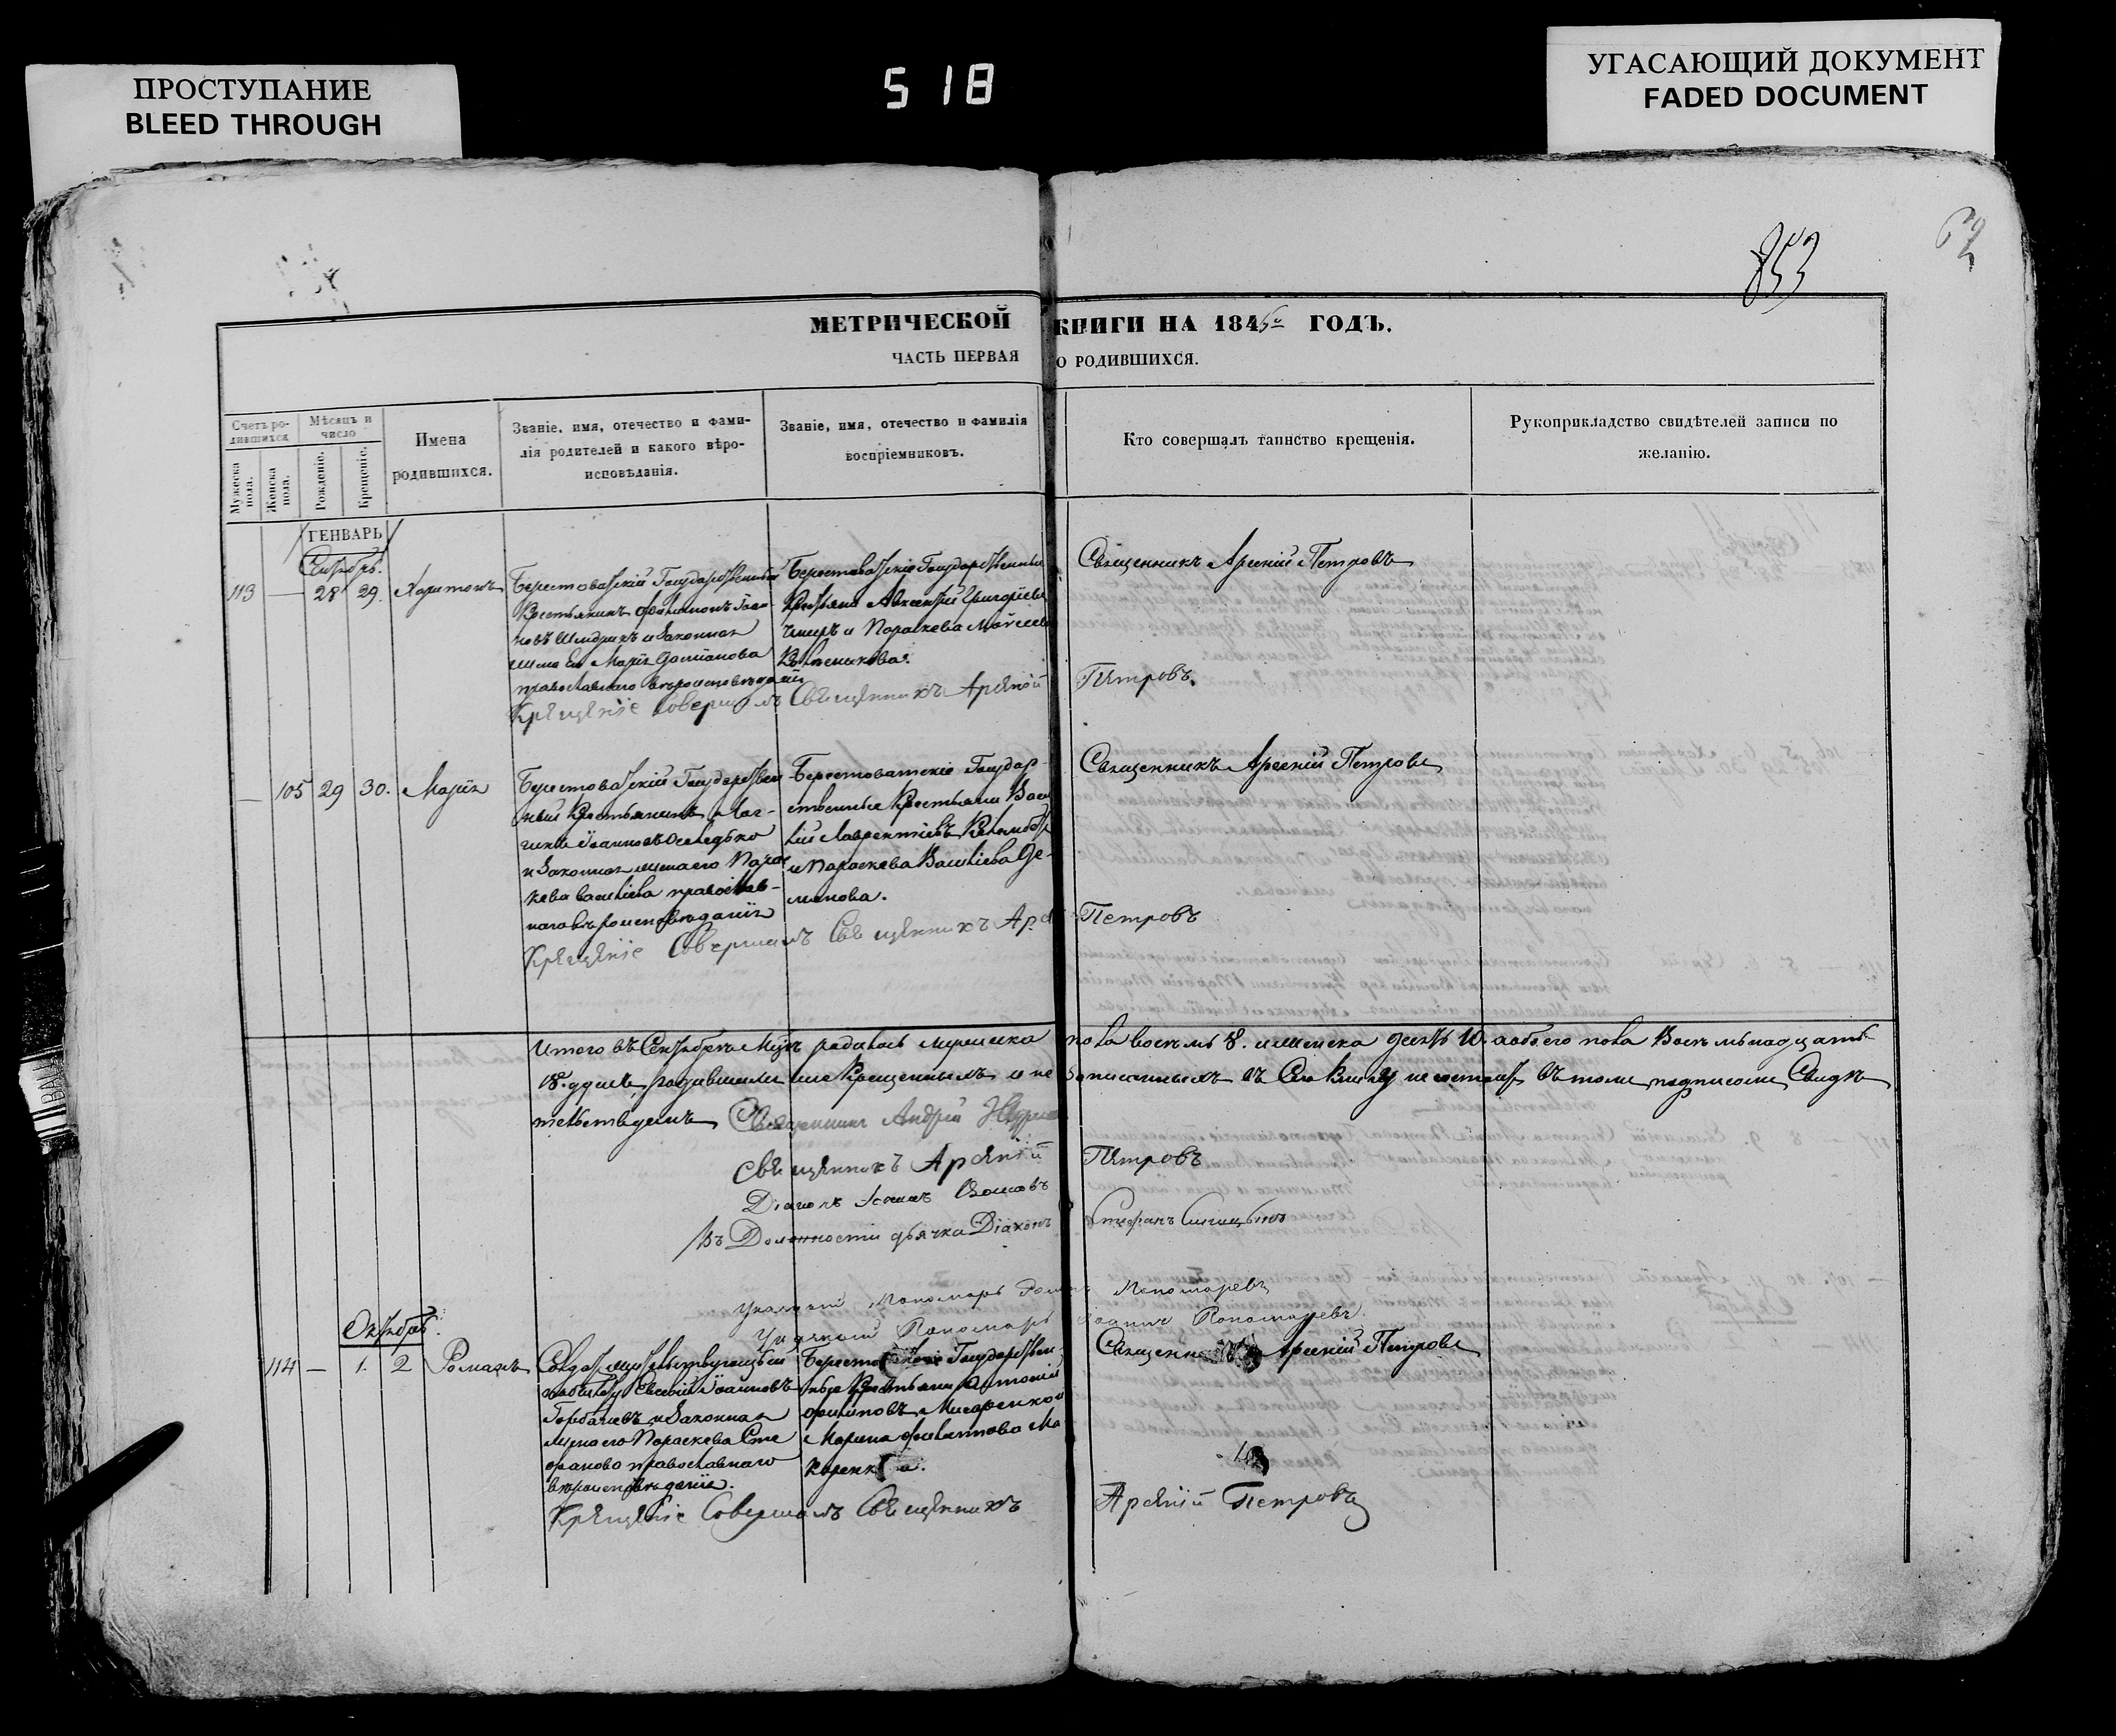 ПРОСТУПАНИЕ
BLEED THROUGH
518
УГАСАЮЩИЙ ДОКУМЕНТ
FADED DOCUMENT
853
62
МЕТРИЧЕСКОЙ КНИГИ НА 1845 ГОДЪ.
ЧАСТЬ ПЕРВАЯ О РОДИВШИХСЯ.
Счетъ ро-
дившихся
Мужеска пола.
Женска пола.
Мѣсяцъ и
число
Рожденіе.
Крещеніе.
Имена
родившихся.
Званіе, имя, отечество и фами-
лія родителей и какого вѣро-
исповѣданія.
Званіе, имя, отечество и фамилія
воспріемниковъ.
Кто совершалъ таинство крещенія.
Рукоприкладство свидѣтелей записи по
желанію.
ГЕНВАРЬ
Сентябрь.
113 — 28 29. Харитонъ
Берестоватскій Государственный
Крестьянинъ Филимонъ Іоан-
новъ и Законная
жена Его Марія Даміанова
православнаго вѣроисповѣданія
Берестоватскіе Государственные
Крестьяне Авксентій Григоріевъ
и Параскева Моѵсеева
Священникъ Арсеній Петровъ
Крещеніе Совершалъ Священникъ Арсеній Петровъ.
— 105 29 30. Марія
Берестоватскій Государствен-
ный Крестьянинъ Лог-
гинъ Іоанновъ Оселедько
и Законная жена его Парас-
кева Васильева православ-
наго вѣроисповѣданія
Берестоватскіе Государ-
ственные Крестьяне Васи
лій Лаврентіевъ
и Параскева Васильева Де-
менова.
Священникъ Арсеній Петровъ
Крещеніе Совершалъ Священникъ Арсе Петровъ
Итого въ Сентябрѣ М-цѣ родилось мужеска пола восемь 8. и женска десять 10. а обоего пола Восемьнадцать
18. душъ, родившихся и не записанныхъ въ Сію Книгу не состоитъ въ томъ подписомъ Свидѣ
тельствуемъ Священникъ Андрей
Священникъ Арсеній Петровъ
Діаконъ Іоаннъ
Въ Должности дьячка Діаконъ Стефанъ
Указный Пономарь Пономаревъ
Указный Пономарь Іоаннъ Пономаревъ
Октябрь.
114 — 1. 2 Романъ
Солдатъ
Евсевій Іоанновъ
Горбачевъ и Законная
жена его Параскева Сте
фанова православнаго
вѣроисповѣданія.
Берестоватскіе Государствен-
ные Крестьяне Антоній
Филиповъ Писаренко и
Марина Филиппова Ма-
каренкова.
Священникъ Арсеній Петровъ
Крещеніе Совершалъ Священникъ Арсеній Петровъ